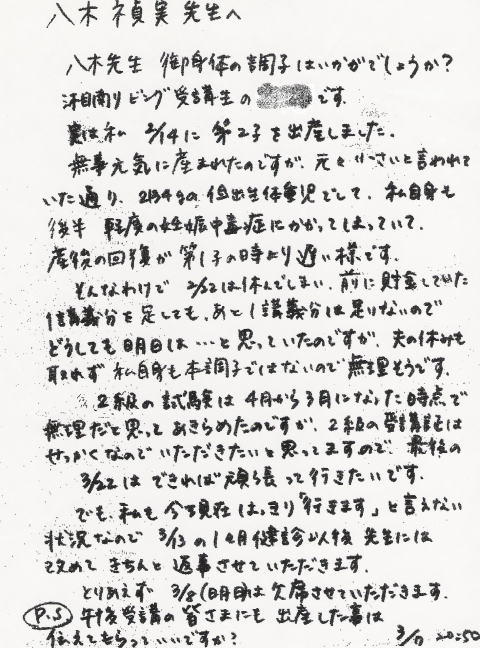 八木禎実先生へ
八木先生 御身体の調子はいかがでしょうか?
湘南リビング受講生の です.
実は私 2/14に 第2子を出産しました.
無事元気に産まれたのですが、元々小さいと言われて
いた通り、2354gの低出生体重児でして、私自身も
後半 軽度の妊娠中毒症にかかってしまっていて、
産後の回復が第1子の時より遅い様です.
そんなわけで 2/22は休んでしまい、前に貯金していた
1講義分を足しても、あと1講義分は足りないので
どうしても明日は…と思っていたのですが、夫の休みも
取れず 私自身も本調子ではないので無理そうです.
2級の試験は 4月から3月になった時点で
無理だと思って あきらめたのですが、2級の受講証は
せっかくなのでいただきたいと思ってますので、最後の
3/22は できれば頑張って行きたいです.
でも、私も 今現在はっきり「行きます」と言えない
状況なので 3/13の1ヶ月健診以後 先生には
改めて きちんと返事させていただきます.
とりあえず 3/8(明日)は欠席させていただきます.
P.S 午後受講の皆さまにも 出産した事は
伝えてもらっていいですか? 3/7 20:50